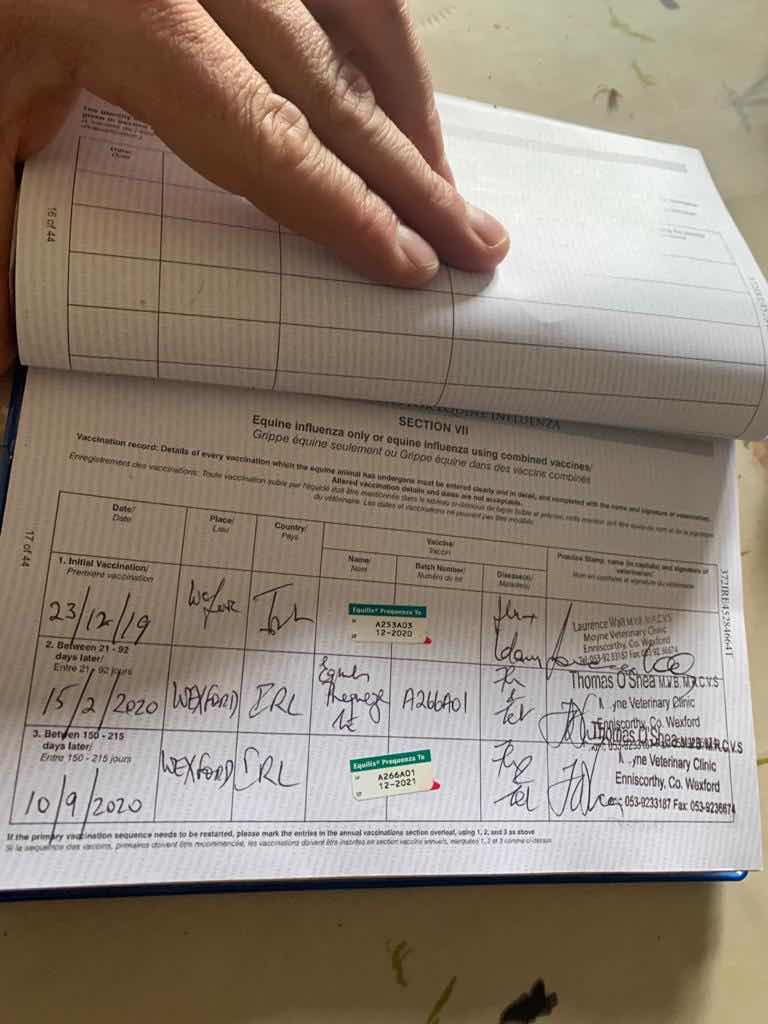 16 of 44
Date/
SECTION VII
Equine influenza only or equine influenza using combined vaccines/
Grippe équine seulement ou Grippe équine dans des vaccins combinés
Vaccination record: Details of every vaccination which the equine animal has undergone must be entered clearly and in detail, and completed with the name and signature of veterinarian.
Altered vaccination details and dates are not acceptable.
Enregistrement des vaccinations: Toute vaccination subie par l'équidé doit être mentionnée dans le tableau ci-dessous de façon lisible et précise
du vétérinaire. Les dates et vaccinations ne peuvent pas être modifiés.
Date/
Date
Place/
Lieu
Country/
Pays
Vaccine/
Vaccin
Name/
Nom
Batch Number/
Numéro du lot
Disease(s)/
Maladie(s)
Practice Stamp, name (in capitals) and signature of
veterinarian/
Nom en capitales et signature du vétérinaire
17 of 44
1. Initial Vaccination/
Première vaccination
23/12/19
Equilis® Prequenza Te
A253A03
12-2020
Laurence Wall M.V.B. M.R.C.V.S
Moyne Veterinary Clinic
Enniscorthy, Co. Wexford
Tel: 053-92 33187 Fax: 053-92 36674
2. Between 21 - 92
days later/
Entre 21 - 92 jours
15/2/2020
WEXFORD
IRL
A266A01
Flu
&
tet
Thomas O'Shea M.V.B. M.R.C.V.S
yne Veterinary Clinic
Enniscorthy, Co. Wexford
3. Betwen 150 - 215
days later/
Entre 150 - 215 jours
10/9/2020
WEXFORD
IRL
Equilis® Prequenza Te
A266A01
12-2021
Flu
&
tet
Thomas O'Shea M.V.B. M.R.C.V.S
yne Veterinary Clinic
Enniscorthy, Co. Wexford
053-9233187 Fax: 053-9236674
If the primary vaccination sequence needs to be restarted, please mark the entries in the annual vaccinations section overleaf, using 1, 2, and 3 as above
Si la séquence des vaccins, primaires doivent être recommencée, les vaccinations doivent être inscrites en section vaccins annuels, marquées 1, 2 et 3 comme ci-dessus